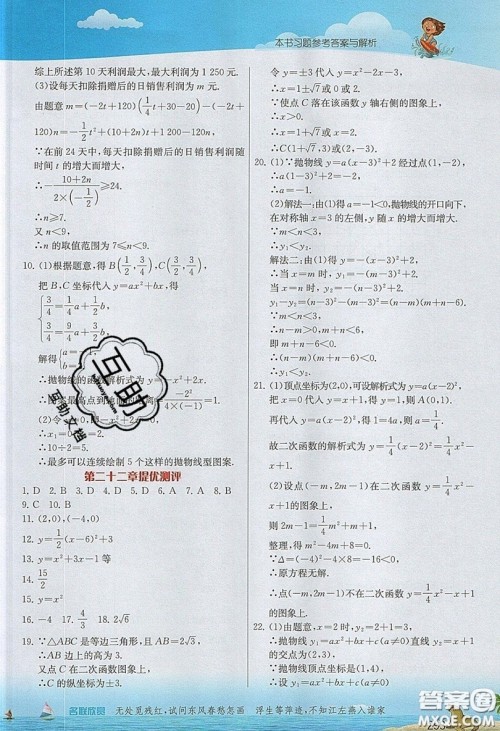 本书习题参考答案与解析
综上所述第10天利润最大,最大利润为1 250元.
(3)设每天扣除捐赠后的日销售利润为m元.
由题意m=(-2t+120)(1/4t+30-20)-(-2t+
120)n=-1/2t²+(10+2n)t+1 200-120n,
∵在前24天中,每天扣除捐赠后的日销售利润随
时间t的增大而增大,
∴-(10+2n)/(2×(-1/2))≥24.
∴n≥7.
又∵n<9,
∴n的取值范围为7≤n<9.
10. (1)根据题意,得B(1/2,3/4),C(3/2,3/4),
把B,C坐标代入y=ax²+bx,得
{3/4=1/4a+1/2b,
3/4=9/4a+3/2b,
解得{a=
∴抛物线的函数解析式为y=-x²+2x.
4×(-1)
∴最多可以连续绘制5个这样的抛物线型图案.
第二十二章提优测评
1. D 2. D 3. D 4. A 5. D 6. B 7. B 8. A
9. C 10. B
11. (2,0),(-4,0)
12. y=1/2(x-6)²+3
13. y=x²+3x-1等
14. 15/2
15. y=x²
16. -4 17. 4/3 18. 2√6
19. ∵△ABC是等边三角形,且AB=2√3,
又点C在二次函数图象上,
令y=±3代入y=x²-2x-3,
∴x=1±√7或x=0或x=2.
∵使点C落在该函数y轴右侧的图象上,
∴x>0.
∴x=1+√7或x=2.
∴C(1+√7,3)或(2,-3).
20. (1)∵抛物线y=a(x-3)²+2经过点(1,-2),
∴-2=a(1-3)²+2.∴a=-1.
(2)解法一:由(1)得a=-1<0,抛物线的开口向下,
在对称轴x=3的左侧,y随x的增大而增大.
∵m<n<3,
∴y₁<y₂.
解法二:由(1)得y=-(x-3)²+2,
∴当x=m时,y₁=-(m-3)²+2.
当x=n时,y₂=-(n-3)²+2.
∵m<n<3,
∴y₁<y₂.
21. (1)顶点坐标为(2,0),可设解析式为y=a(x-2)²,
把x=0代入y=x+1,得y=1,则A(0,1).
再代入y=a(x-2)²,得1=4a,则a=1/4,
故二次函数的解析式为y=1/4(x-2)²=1/4x²-
x+1.
(2)假设点(-m,2m-1)在二次函数y=1/4x²-x+
1的图象上,
则2m-1=1/4m²+m+1,
整理得m²-4m+8=0.
∵Δ=(-4)²-4×8=-16<0,
∴原方程无解.
∴点(-m,2m-1)不在二次函数y=1/4x²-x+1
的图象上.
22. (1)由题意,得1+b=-2,解得b=-3,
∵抛物线y₁=ax²+bx+c(a≠0)与
抛物线y₁=ax²+bx+c(a≠0)的
名庭欣赏 无处觅残红,试问东风春愁怎画 浮生等萍迹,不知江左燕入谁家
互助
互助文档
答案圈
MXQE.COM